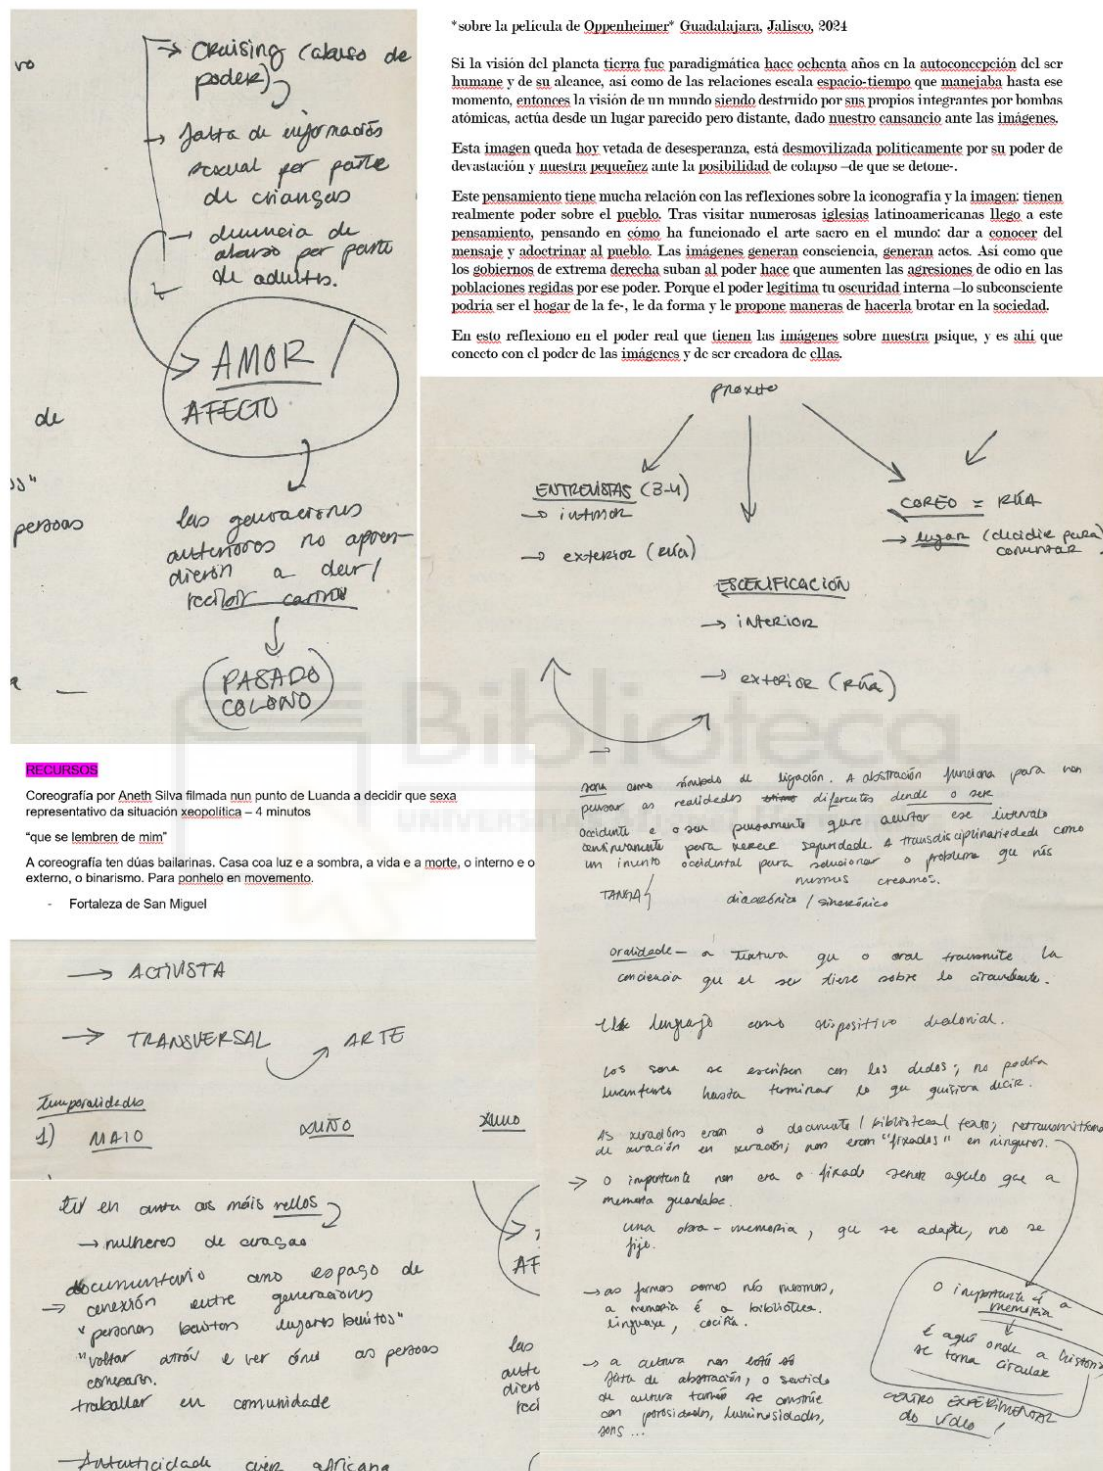 ro
→ Cruising (abuso de
poder)
→ falta de información
sexual por parte
de crianças
→ denuncia de
abuso por parte
de adultos.
AMOR /
AFECTO
de
os"
persoas
las generaciones
anteriores no apren-
dieron a dar/
recibir cariño
(PASADO
COLONO)
*sobre la película de Oppenheimer* Guadalajara, Jalisco, 2024
Si la visión del planeta tierra fue paradigmática hace ochenta años en la autoconcepción del ser
humane y de su alcance, así como de las relaciones escala espacio-tiempo que manejaba hasta ese
momento, entonces la visión de un mundo siendo destruido por sus propios integrantes por bombas
atómicas, actúa desde un lugar parecido pero distante, dado nuestro cansancio ante las imágenes.
Esta imagen queda hoy vetada de desesperanza, está desmovilizada políticamente por su poder de
devastación y nuestra pequeñez ante la posibilidad de colapso –de que se detone-.
Este pensamiento tiene mucha relación con las reflexiones sobre la iconografía y la imagen: tienen
realmente poder sobre el pueblo. Tras visitar numerosas iglesias latinoamericanas llego a este
pensamiento, pensando en cómo ha funcionado el arte sacro en el mundo: dar a conocer del
mensaje y adoctrinar al pueblo. Las imágenes generan consciencia, generan actos. Así como que
los gobiernos de extrema derecha suban al poder hace que aumenten las agresiones de odio en las
poblaciones regidas por ese poder. Porque el poder legitima tu oscuridad interna –lo subconsciente
podría ser el hogar de la fe-, le da forma y le propone maneras de hacerla brotar en la sociedad.
En esto reflexiono en el poder real que tienen las imágenes sobre nuestra psique, y es ahí que
conecto con el poder de las imágenes y de ser creadora de ellas.
proxecto
ENTREVISTAS (3-4)
→ interior
→ exterior (rúa)
ESCENIFICACIÓN
→ interior
→ exterior (rúa)
COREO = RÚA
→ lugar (decidir para
comunzar
Biblioteca
RECURSOS
Coreografía por Aneth Silva filmada nun punto de Luanda a decidir que sexa
representativo da situación xeopolítica – 4 minutos
"que se lembren de mim"
A coreografía ten dúas bailarinas. Casa coa luz e a sombra, a vida e a morte, o interno e o
externo, o binarismo. Para ponhelo en movemento.
- Fortaleza de San Miguel
→ ACTIVISTA
→ TRANSVERSAL ARTE
Temporalidades
1) MAIO XUÑO XULLO
ter en conta aos máis vellos
→ mulheres de coraçao
documentario como espaço de
→ conexión entre generaciones
"personas bonitas lugares bonitos"
"voltar atrás e ver onde as persoas
comezaron.
traballar en comunidade
Autenticidade cuir africana
AF
las
ante
diero
reci
sona como símbolo de ligación. A abstración funciona para non
pensar as realidades diferentes dende o ser
occidente e o seu pensamento quere acurtar ese intervalo
continuamente para xerar seguridade. A transdisciplinariedade como
un invento occidental para solucionar o problema que nós
mesmos creamos.
TANGA diacrónico / sincrónico
oralidade – a textura que o oral transmite la
conciencia que el ser tiene sobre lo circundante.
lenguaje como dispositivo decolonial.
Los sona se escriben con los dedos; no podía
levantarse hasta terminar lo que quisiera decir.
As xeracións eran o documento / biblioteca / texto; retransmitíanse
de xeración en xeración; non eran "fixados" en ningures.
→ o importante non era o fixado senon aquelo que a
memoria guardaba.
una obra-memoria, que se adapte, no se
fije.
→ as formas somos nós mesmos,
a memoria é a biblioteca.
linguaxe, cociña.
→ a cultura non está só
feita de abstración, o sentido
de cultura tamén se constrúe
con porosidades, luminosidades,
sons ...
O importante é a
memoria
É aquí onde a historia
se torna circular
CENTRO EXPERIMENTAL
do vídeo!